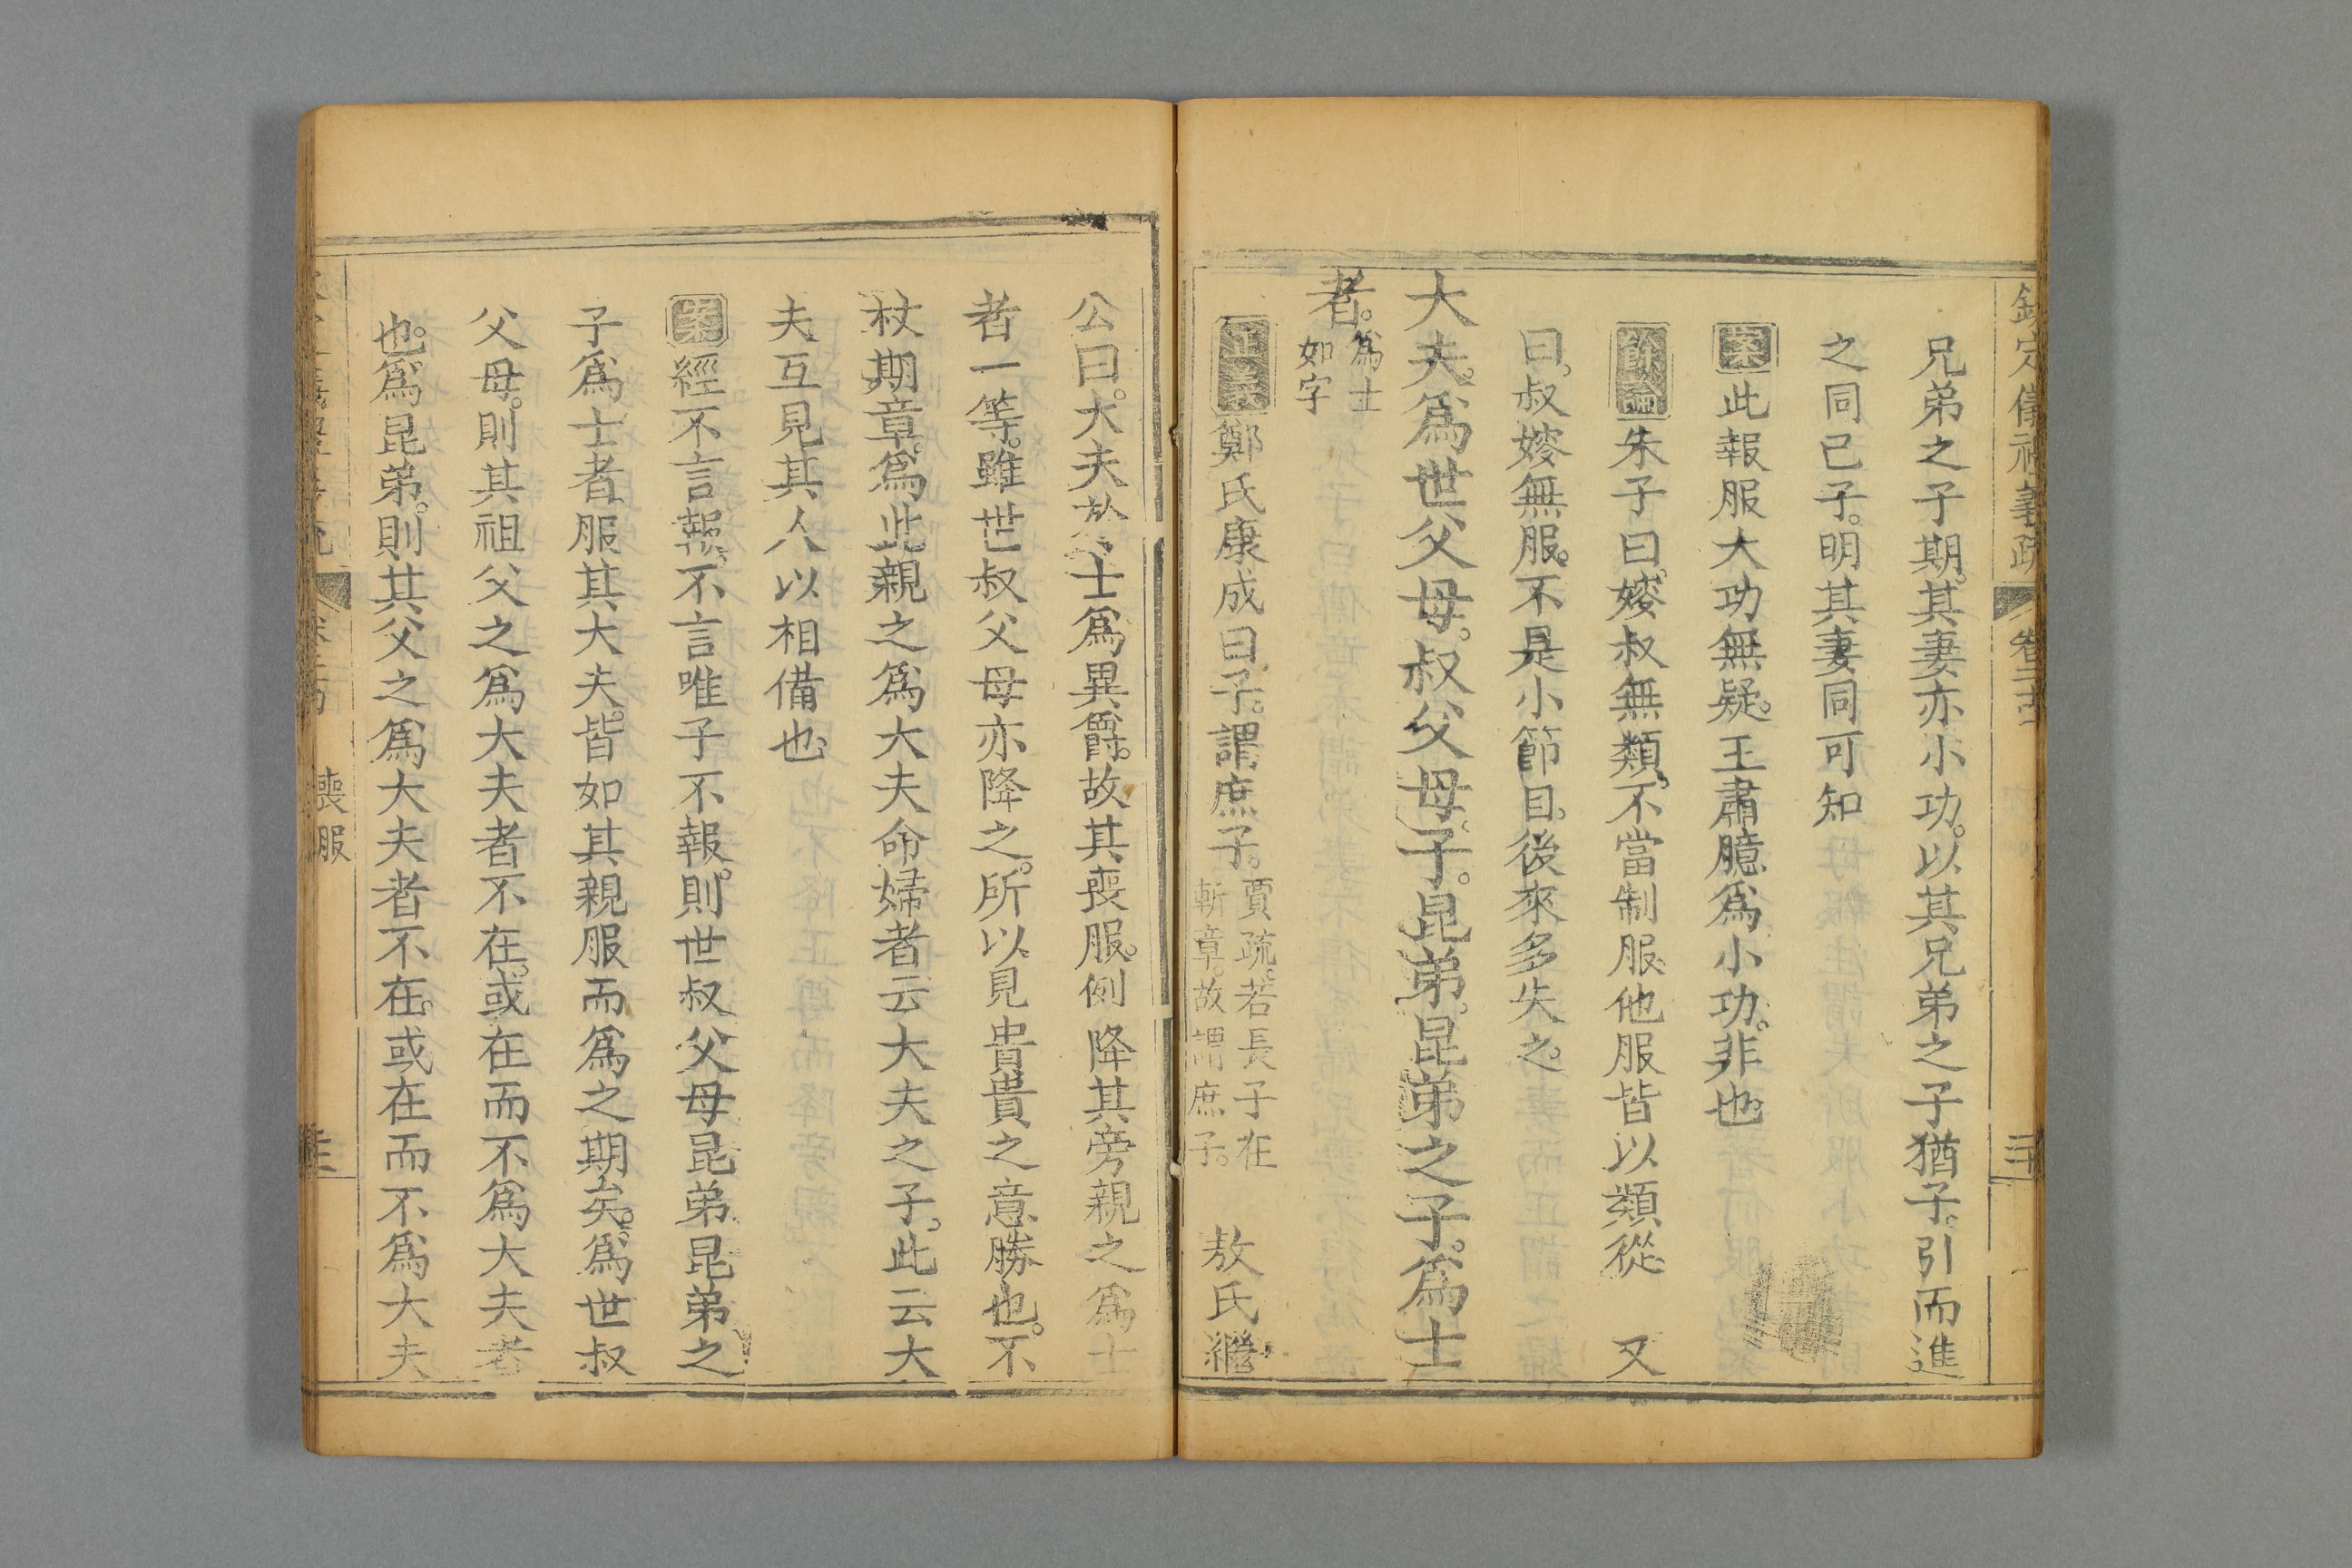 欽定儀禮義疏 卷二十 三十
兄弟之子期。其妻亦小功。以其兄弟之子猶子。引而進
之同已子。明其妻同可知
案此報服大功無疑。王肅臆爲小功。非也
餘論朱子曰。嫂叔無類。不當制服。他服皆以類從 又
曰。叔嫂無服。不是小節目。後來多失之
大夫。爲世父母。叔父母。子。昆弟。昆弟之子。爲士
者。爲士
如字
正義鄭氏康成曰。子。謂庶子。賈疏。若長子在
斬章。故謂庶子。 敖氏繼
公曰。大夫於士爲異爵。故其喪服。例降其旁親之爲士
者一等。雖世叔父母亦降之。所以見貴貴之意勝也。不
杖期章。爲此親之爲大夫命婦者云大夫之子。此云大
夫互見其人以相備也
案經不言報。不言唯子不報。則世叔父母昆弟昆弟之
子爲士者服其大夫。皆如其親服而爲之期矣。爲世叔
父母。則其祖父之爲大夫者不在。或在而不爲大夫者
也。爲昆弟。則其父之爲大夫者不在。或在而不爲大夫
喪服